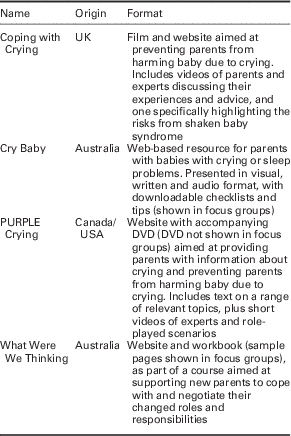 Name Origin Format
Coping with UK Film and website aimed at
Crying preventing parents from
harming baby due to crying.
Includes videos of parents and
experts discussing their
experiences and advice, and
one specifically highlighting the
risks from shaken baby
syndrome
Cry Baby Australia Web-based resource for parents
with babies with crying or sleep
problems. Presented in visual,
written and audio format, with
downloadable checklists and
tips (shown in focus groups)
PURPLE Canada/ Website with accompanying
Crying USA DVD (DVD not shown in focus
groups) aimed at providing
parents with information about
crying and preventing parents
from harming baby due to
crying. Includes text on a range
of relevant topics, plus short
videos of experts and role-
played scenarios
What Were Australia Website and workbook (sample
We Thinking pages shown in focus groups),
as part of a course aimed at
supporting new parents to cope
with and negotiate their
changed roles and
responsibilities